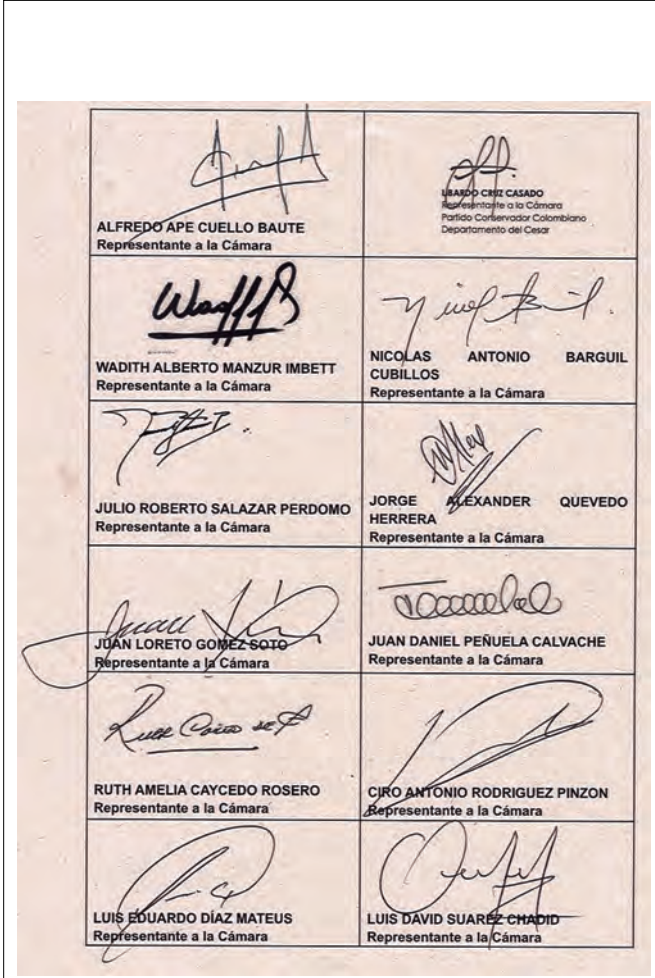 ALFREDO APE CUELLO BAUTE
Representante a la Cámara
LIBARDO CRUZ CASADO
Representante a la Cámara
Partido Conservador Colombiano
Departamento del Cesar
WADITH ALBERTO MANZUR IMBETT
Representante a la Cámara
NICOLAS ANTONIO BARGUIL
CUBILLOS
Representante a la Cámara
JULIO ROBERTO SALAZAR PERDOMO
Representante a la Cámara
JORGE ALEXANDER QUEVEDO
HERRERA
Representante a la Cámara
JUAN LORETO GOMEZ SOTO
Representante a la Cámara
JUAN DANIEL PEÑUELA CALVACHE
Representante a la Cámara
RUTH AMELIA CAYCEDO ROSERO
Representante a la Cámara
CIRO ANTONIO RODRIGUEZ PINZON
Representante a la Cámara
LUIS EDUARDO DÍAZ MATEUS
Representante a la Cámara
LUIS DAVID SUAREZ CHADID
Representante a la Cámara